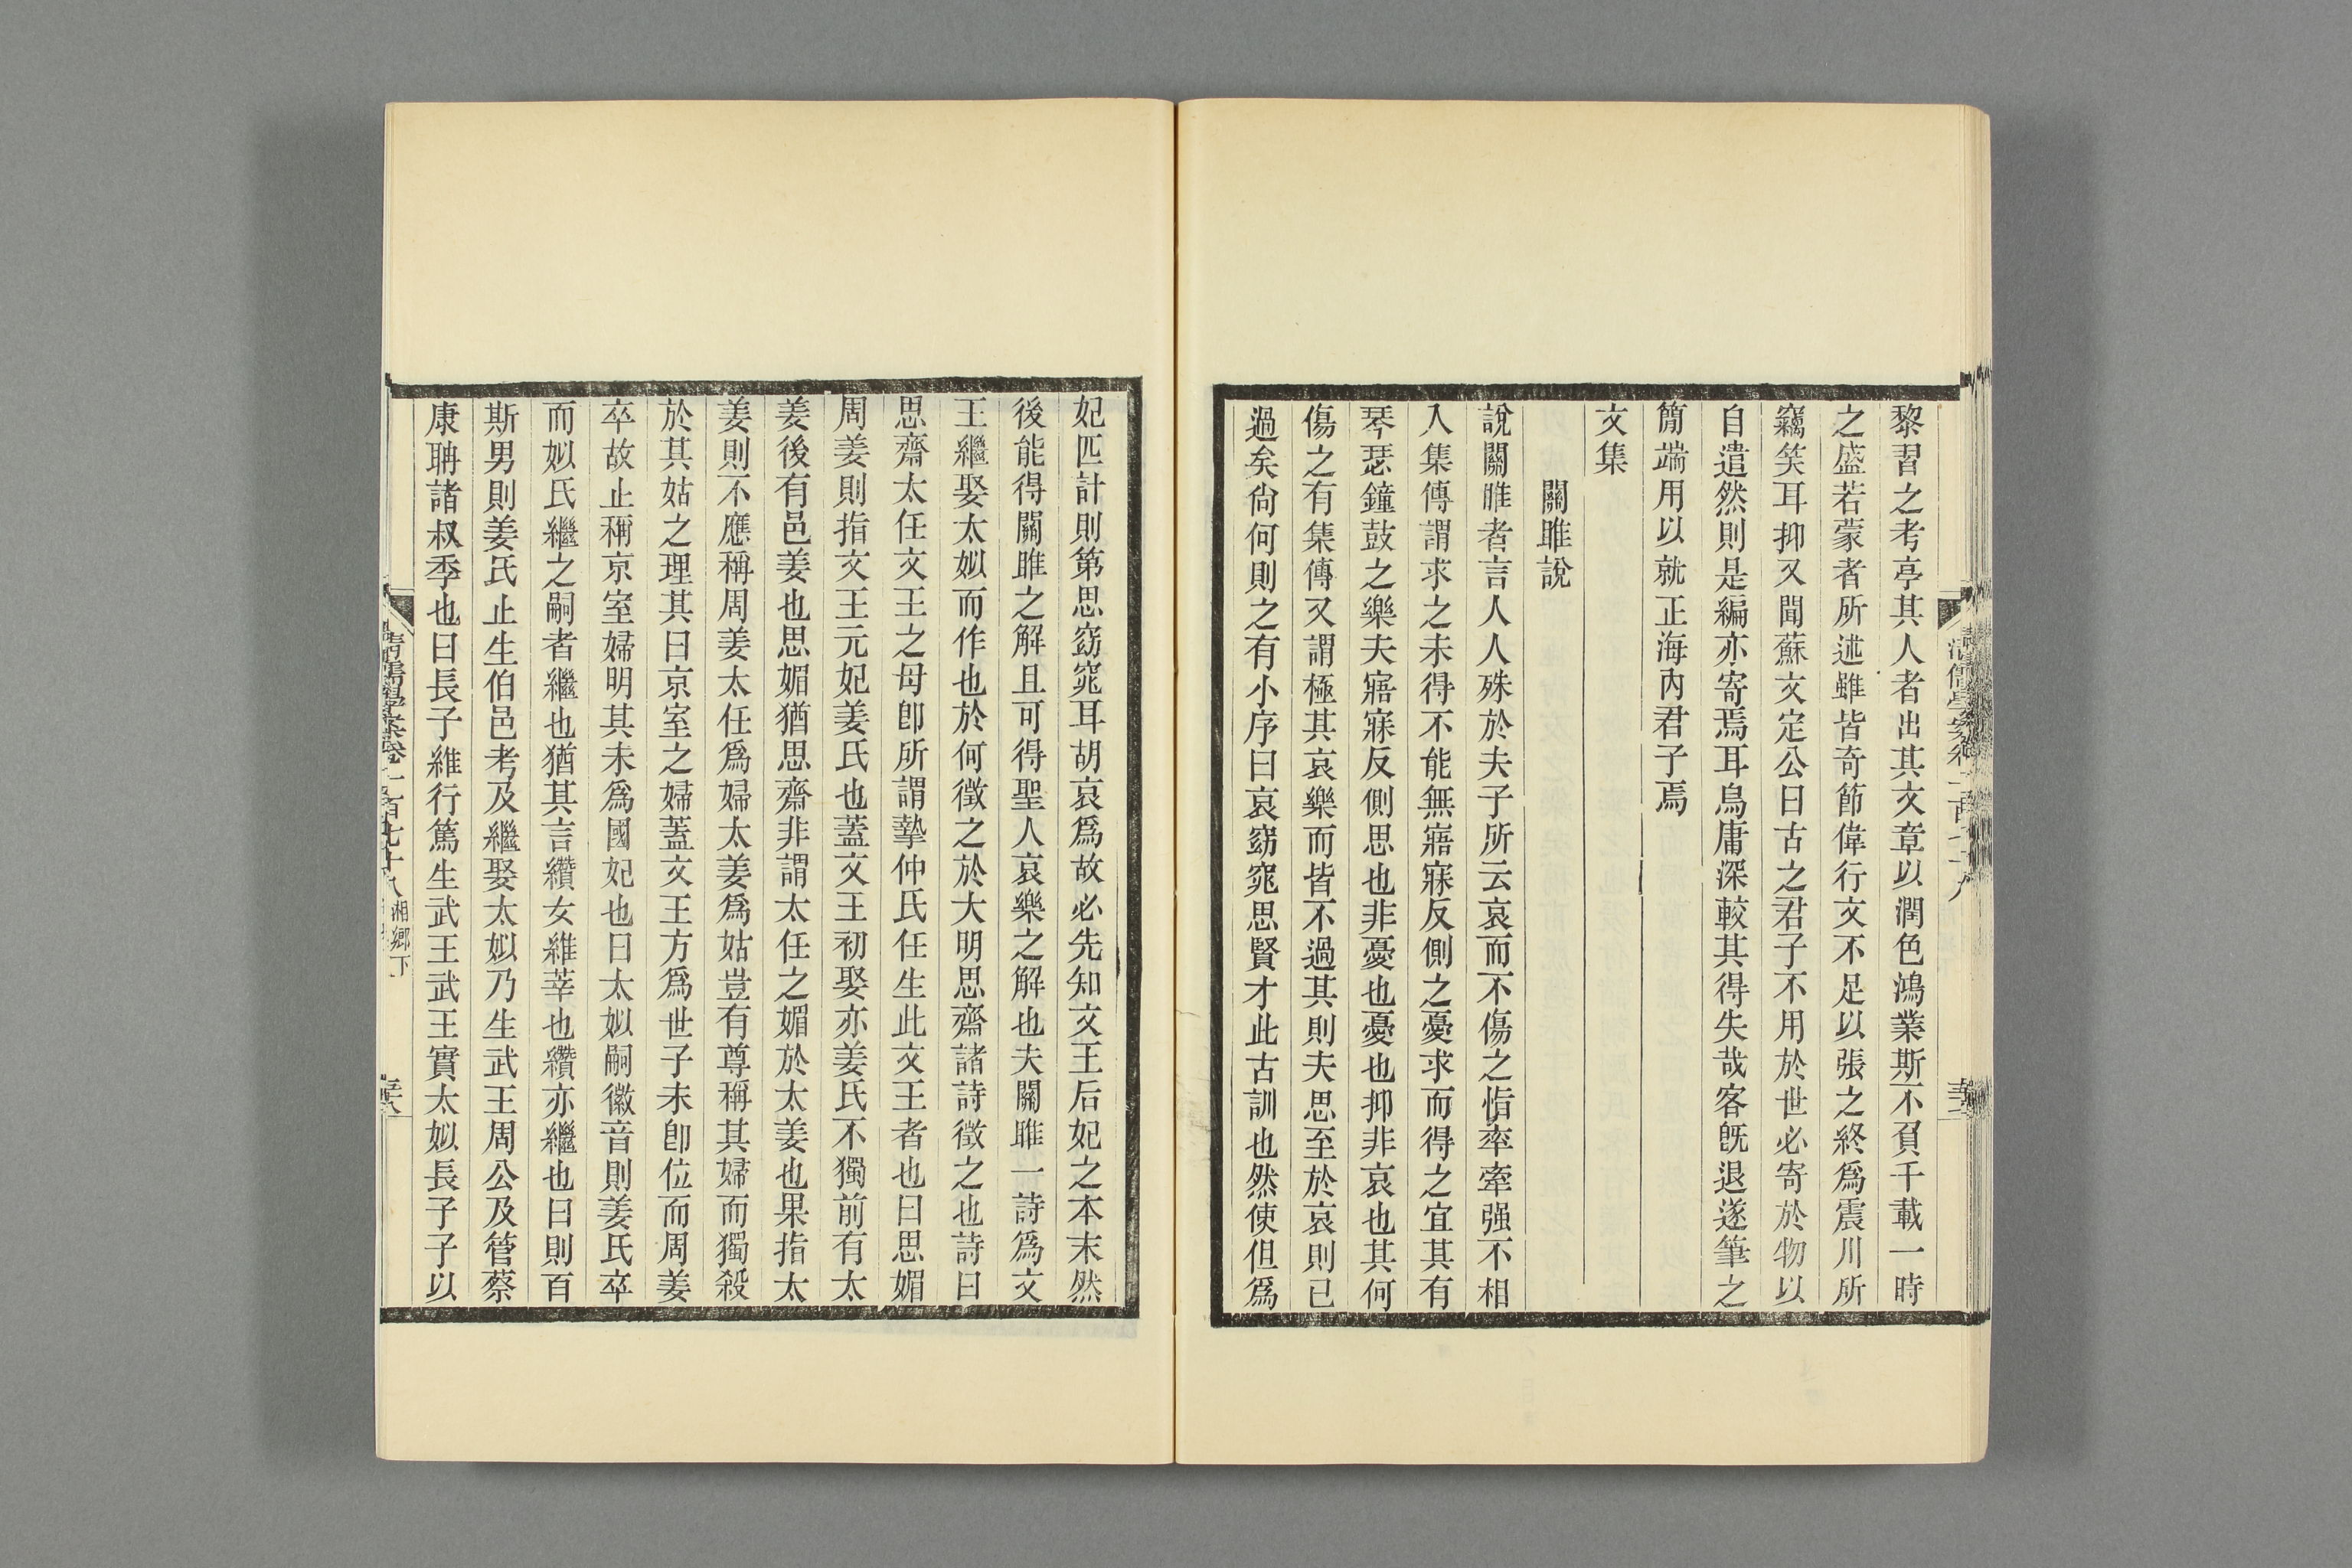 黎習之考亭其人者出其文章以潤色鴻業斯不負千載一時
之盛若蒙者所述雖皆奇節偉行文不足以張之終爲震川所
竊笑耳抑又聞蘇文定公曰古之君子不用於世必寄於物以
自遣然則是編亦寄焉耳烏庸深較其得失哉客旣退遂筆之
簡端用以就正海內君子焉
文集
關雎說
說關雎者言人人殊於夫子所云哀而不傷之恉率牽强不相
入集傳謂求之未得不能無寤寐反側之憂求而得之宜其有
琴瑟鐘鼓之樂夫寤寐反側思也非憂也憂也抑非哀也其何
傷之有集傳又謂極其哀樂而皆不過其則夫思至於哀則已
過矣尙何則之有小序曰哀窈窕思賢才此古訓也然使但爲
妃匹計則第思窈窕耳胡哀爲故必先知文王后妃之本末然
後能得關雎之解且可得聖人哀樂之解也夫關雎一詩爲文
王繼娶太姒而作也於何徵之於大明思齋諸詩徵之也詩曰
思齋太任文王之母卽所謂摯仲氏任生此文王者也曰思媚
周姜則指文王元妃姜氏也蓋文王初娶亦姜氏不獨前有太
姜後有邑姜也思媚猶思齋非謂太任之媚於太姜也果指太
姜則不應稱周姜太任爲婦太姜爲姑豈有尊稱其婦而獨殺
於其姑之理其曰京室之婦蓋文王方爲世子未卽位而周姜
卒故止稱京室婦明其未爲國妃也曰太姒嗣徽音則姜氏卒
而姒氏繼之嗣者繼也猶其言纘女維莘也纘亦繼也曰則百
斯男則姜氏止生伯邑考及繼娶太姒乃生武王周公及管蔡
康聃諸叔季也曰長子維行篤生武王武王實太姒長子子以
清儒學案卷一百七十八 湘鄉下